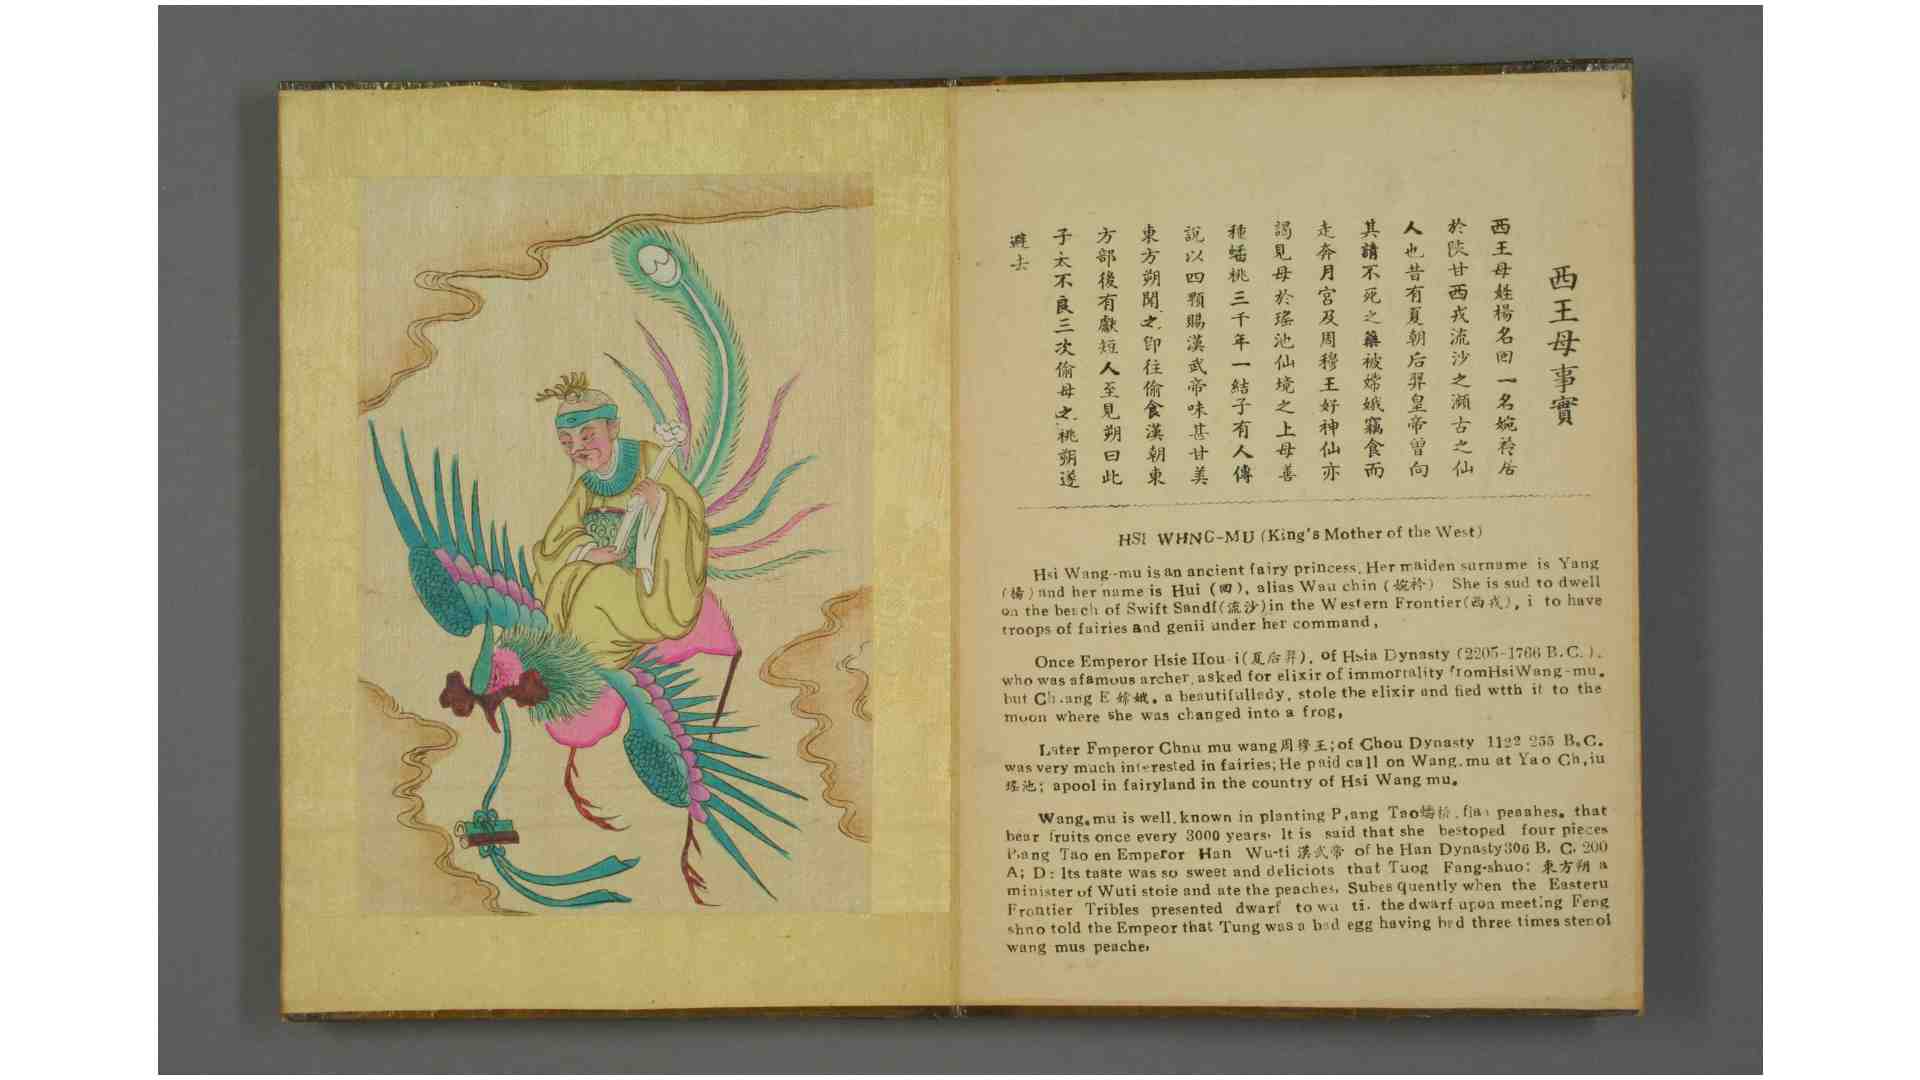 西王母事實
西王母姓楊名回一名婉衿居
於陝甘西戎流沙之瀕古之仙
人也昔有夏朝后羿皇帝曾向
其請不死之藥被嫦娥竊食而
走奔月宮及周穆王好神仙亦
謁見母於瑤池仙境之上母善
種蟠桃三千年一結子有人傳
說以四顆賜漢武帝味甚甘美
東方朔聞之卽往偷食漢朝東
方部後有獻短人至見朔曰此
子太不良三次偷母之桃朔遂
避去
HSI WHNG-MU (King's Mother of the West)
Hsi Wang-mu is an ancient fairy princess. Her maiden surname is Yang
(楊) and her name is Hui (回), alias Wau chin (婉衿) She is sud to dwell
on the beach of Swift Sandf (流沙) in the Western Frontier (西戎), i to have
troops of fairies and genii under her command,
Once Emperor Hsie Hou-i (夏后羿), of Hsia Dynasty (2205-1766 B.C.).
who was afamous archer, asked for elixir of immortality from HsiWang-mu.
but Ch.ang E 嫦娥. a beautifullady, stole the elixir and fied wtth it to the
moon where she was changed into a frog,
Later Fmperor Chnu mu wang 周穆王; of Chou Dynasty 1122 255 B.C.
was very much interested in fairies; He paid call on Wang.mu at Yao Ch,iu
瑤池; apool in fairyland in the country of Hsi Wang mu.
Wang.mu is well.known in planting P,ang Tao 蟠桃. peaahes. that
bear fruits once every 3000 years. It is said that she bestoped four pieces
P.ang Tao en Emperor Han Wu-ti 漢武帝 of he Han Dynasty 306 B. C. 200
A; D: Its taste was so sweet and deliciots that Tuog Fang-shuo: 東方朔 a
minister of Wuti stoie and ate the peaches. Subes quently when the Easteru
Frontier Tribles presented dwarf to wu ti. the dwarf upon meeting Feng
shno told the Empeor that Tung was a bad egg having had three times stenol
wang mus peache,